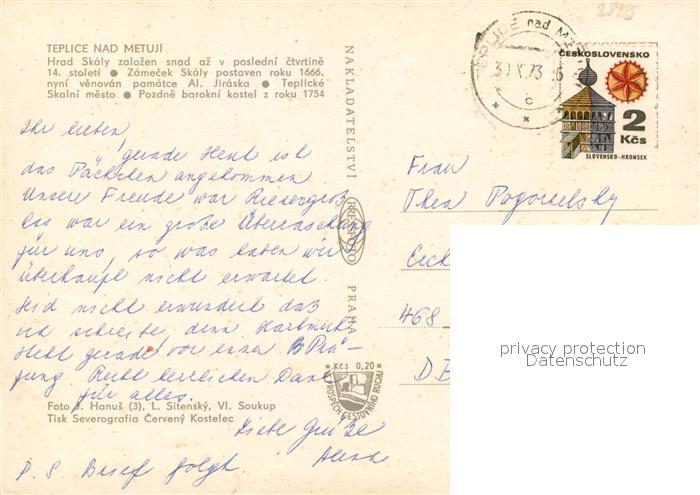 TEPLICE NAD METUJÍ
Hrad Skály založen snad až v poslední čtvrtině
14. století ● Zámeček Skály postaven roku 1666,
nyní věnován památce Al. Jiráska ● Teplické
Skalní město ● Pozdně barokní kostel z roku 1754
Ihr lieben,
gerade Heut ist
das Päckchen angekommen
Unsere Freude war Riesengroß
Es war ein große Überraschung
für uns, so was haben wir
überhaupt nicht erwartet.
Seid nicht erwundert daß
ich schreibe, denn Hartmut
steht gerade vor einer Prü-
fung. Recht herrlichen Dank
für alles.
Liebe Grüße
Alena
P.S Brief folgt.
Foto J. Hanuš (3), L. Sitenský, Vl. Soukup
Tisk Severografia Červený Kostelec
NAKLADATELSTVÍ
PRESSFOTO
PRAHA
Kčs 0,20
VE PROSPĚCH CESTOVNÍHO RUCHU
TEPLICE nad MET
30.X.73
ČESKOSLOVENSKO
2
Kčs
SLOVENSKO-HRONSEK
Frau
Thea Pogorzelsky
468
privacy protection
Datenschutz